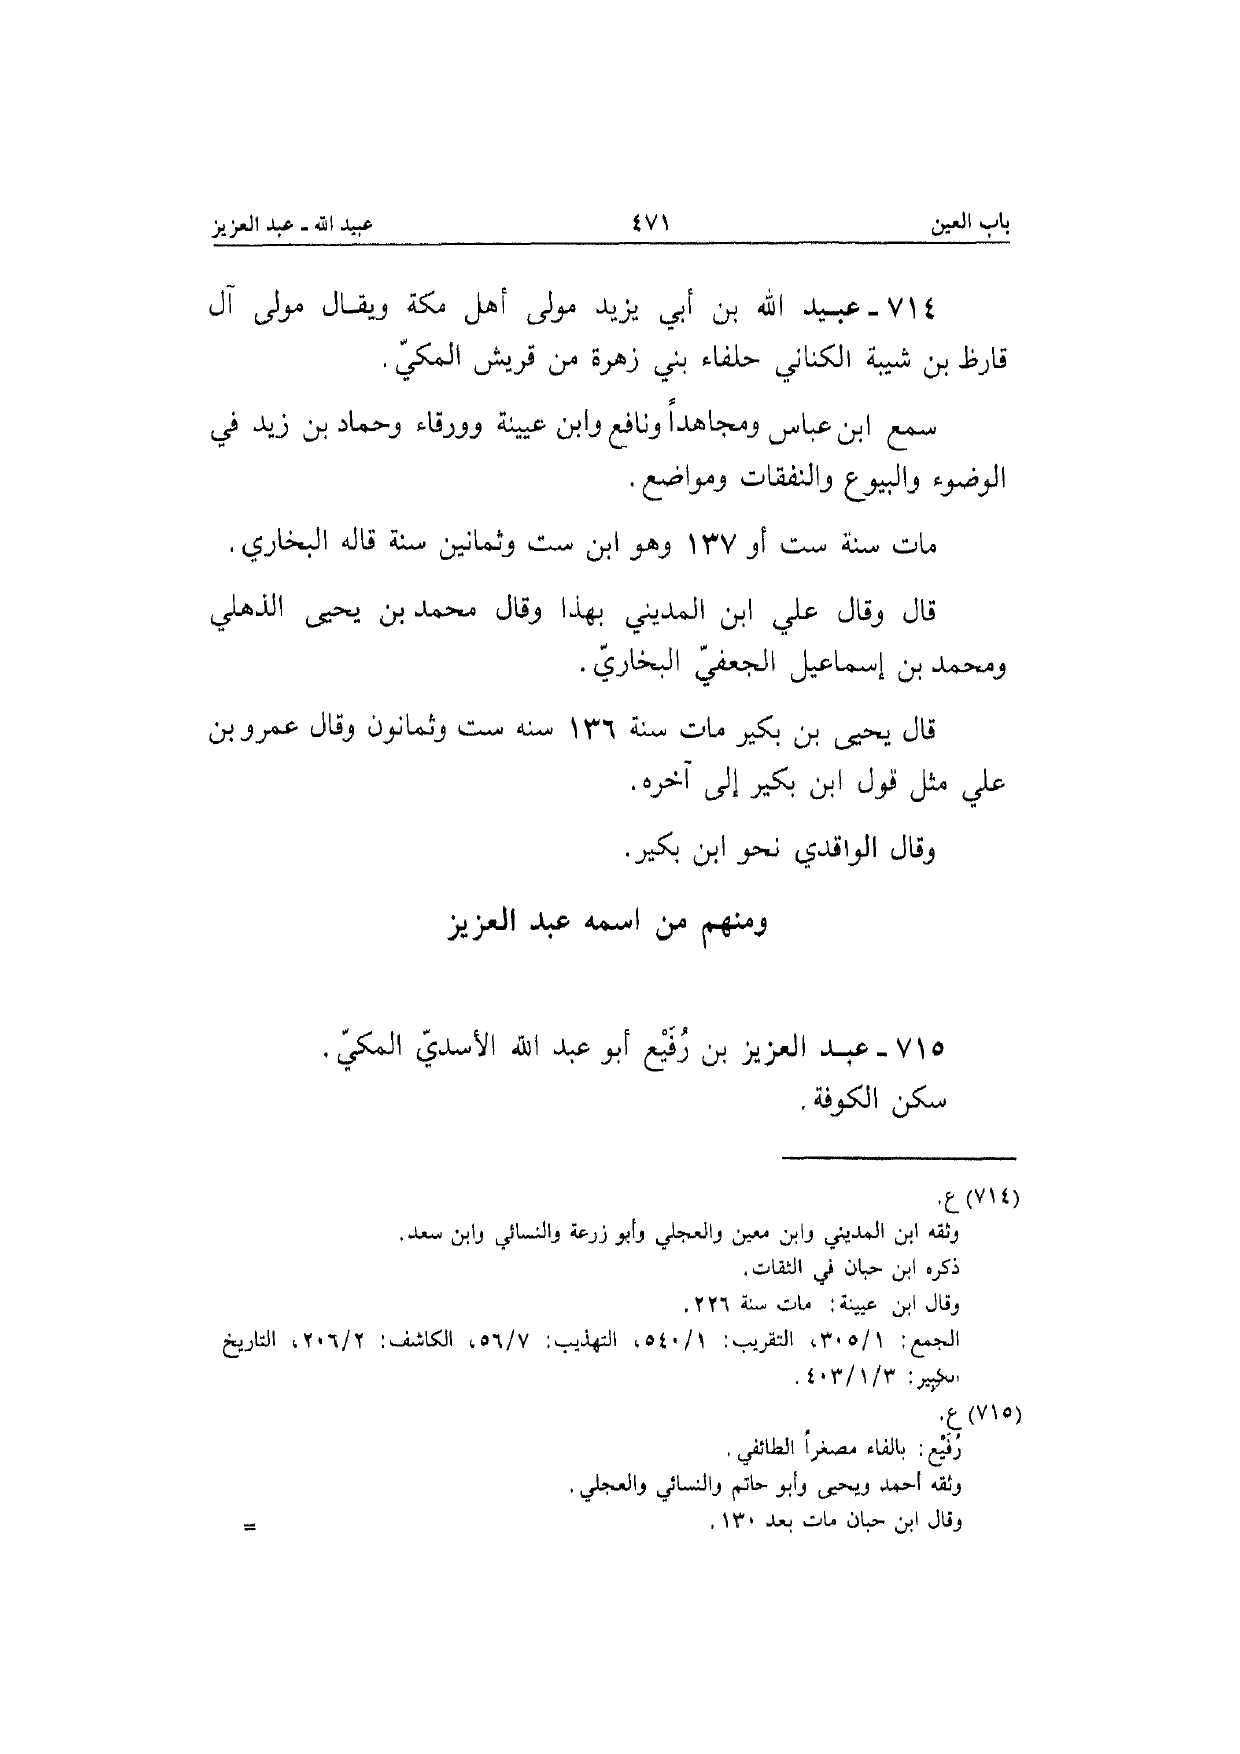 باب العين ٤٧١ عبيد الله ـ عبد العزيز
٧١٤ ـ عبيد الله بن أبي يزيد مولى أهل مكة ويقال مولى آل
قارظ بن شيبة الكناني حلفاء بني زهرة من قريش المكيّ.
سمع ابن عباس ومجاهداً ونافع وابن عيينة وورقاء وحماد بن زيد في
الوضوء والبيوع والنفقات ومواضع.
مات سنة ست أو ١٣٧ وهو ابن ست وثمانين سنة قاله البخاري.
قال وقال علي ابن المديني بهذا وقال محمد بن يحيى الذهلي
ومحمد بن إسماعيل الجعفيّ البخاريّ.
قال يحيى بن بكير مات سنة ١٣٦ سنه ست وثمانون وقال عمرو بن
علي مثل قول ابن بكير إلى آخره.
وقال الواقدي نحو ابن بكير.
ومنهم من اسمه عبد العزيز
٧١٥ ـ عبد العزيز بن رُفَيْع أبو عبد الله الأسديّ المكيّ.
سكن الكوفة.
(٧١٤) ع.
وثقه ابن المديني وابن معين والعجلي وأبو زرعة والنسائي وابن سعد.
ذكره ابن حبان في الثقات.
وقال ابن عيينة: مات سنة ٢٢٦.
الجمع: ٣٠٥/١، التقريب: ٥٤٠/١، التهذيب: ٥٦/٧، الكاشف: ٢٠٦/٢، التاريخ
الكبير: ٤٠٣/١/٣.
(٧١٥) ع.
رُفَيْع: بالفاء مصغراً الطائفي.
وثقه أحمد ويحيى وأبو حاتم والنسائي والعجلي.
وقال ابن حبان مات بعد ١٣٠. =